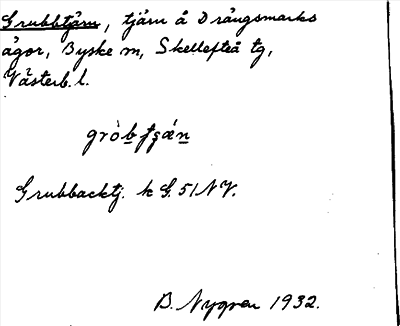 Grubbtjärn, tjärn å Drängsmarks
ägor, Byske sn, Skellefteå tg,
Västerb. l.
Grubbacktj. k G. 51 NV.
B. Nygren 1932.